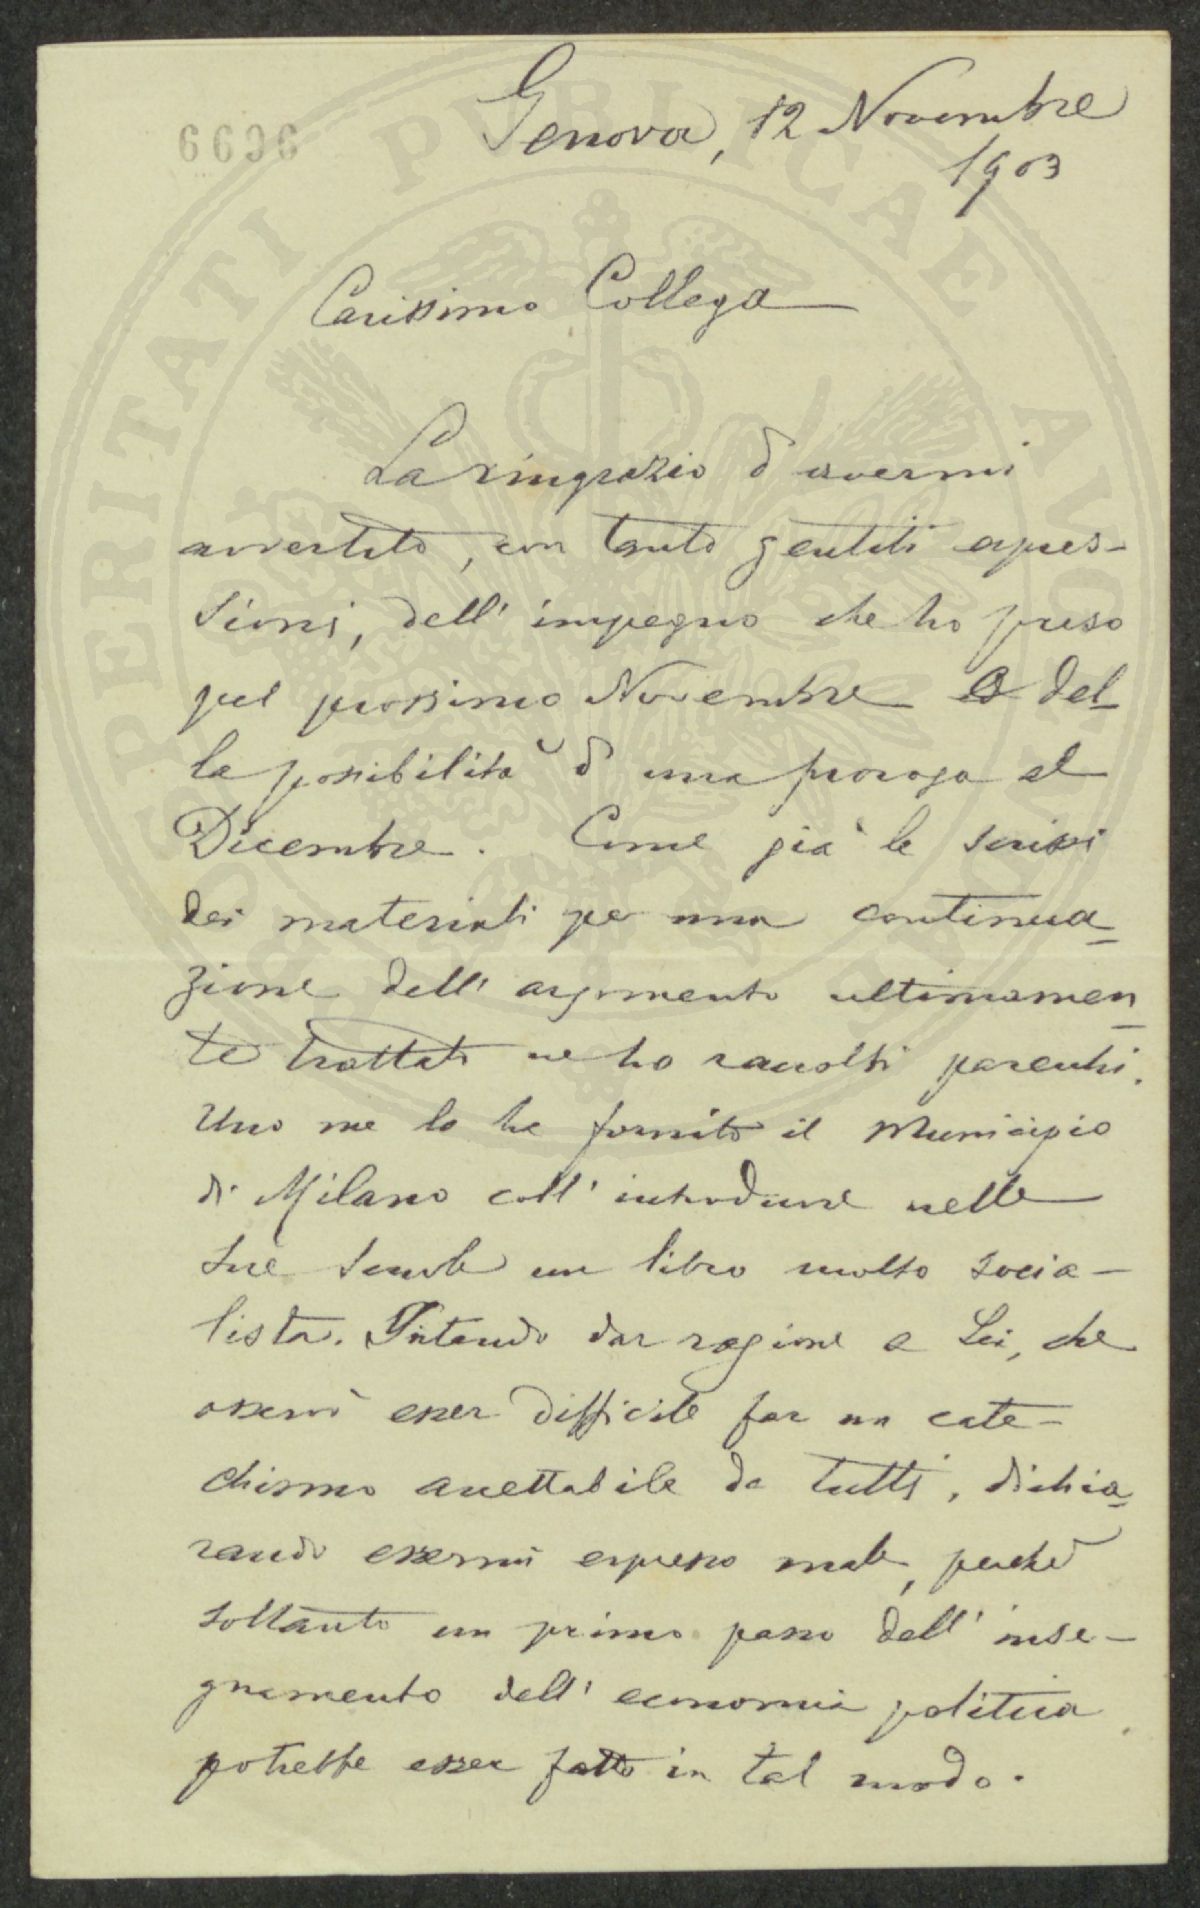 6696
Genova, 12 Novembre
1903
Carissimo Collega
La ringrazio d'avermi
avvertito, con tanto gentili espres-
sioni, dell'impegno che ho preso
pel prossimo Novembre e del-
la possibilità d'una proroga al
Dicembre. Come già le scrissi
dei materiali per una continua-
zione dell'argomento ultimamen-
te trattato ne ho raccolti parecchi.
Uno me lo ha fornito il Municipio
di Milano coll'introdurre nelle
sue scuole un libro molto socia-
lista. Intendo dar ragione a Lei, che
osservò esser difficile far un cate-
chismo accettabile da tutti, dichia-
rando essermi espresso male, perchè
soltanto un primo passo dell'inse-
gnamento dell'economia politica
potrebbe esser fatto in tal modo.
PROSPERITATI PVBLICAE AVGENDAE